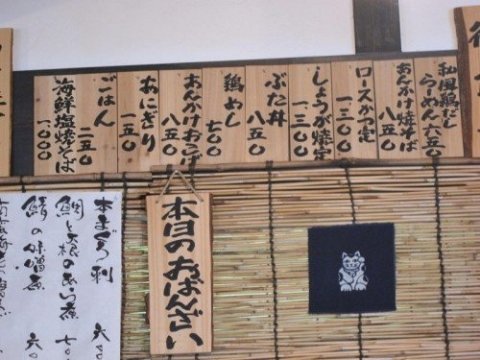 和風鶏だし
らーめん 六五〇
あんかけ焼そば
八五〇
ロースかつ定
一三〇〇
しょうが焼定
一三〇〇
ぶた丼
八五〇
鶏めし
七〇〇
あんかけおこげ
八五〇
おにぎり
一五〇
ごはん
二五〇
海鮮塩焼そば
一〇〇〇
本日のおばんざい
本まぐろ刺
鯛と大根のあら煮 七〇
鯖の味噌煮